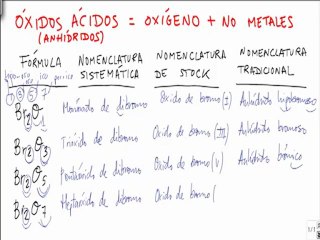 ÓXIDOS ÁCIDOS = OXÍGENO + NO METALES
(ANHÍDRIDOS)
FÓRMULA NOMENCLATURA SISTEMÁTICA NOMENCLATURA DE STOCK NOMENCLATURA TRADICIONAL
1 3 5 7
Br2O1 Monóxido de dibromo Óxido de bromo (I) Anhídrido hipobromoso
Br2O3 Trióxido de dibromo Óxido de bromo (III) Anhídrido bromoso
Br2O5 Pentaóxido de dibromo Óxido de bromo (V) Anhídrido brómico
Br2O7 Heptaóxido de dibromo Óxido de bromo (
1/1